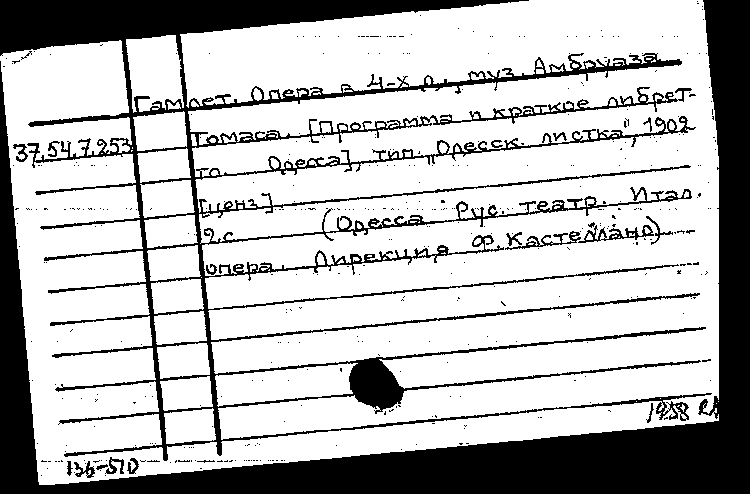 Гамлет. Опера в 4-х д., муз. Амбруаза
37.54.7.253
Томаса. [Программа и краткое либрет-
то. Одесса], тип. „Одесск. листка", 1902
[ценз]
2 с. (Одесса Рус. театр. Итал.
опера. Дирекция Ф. Кастеллано)
136-510